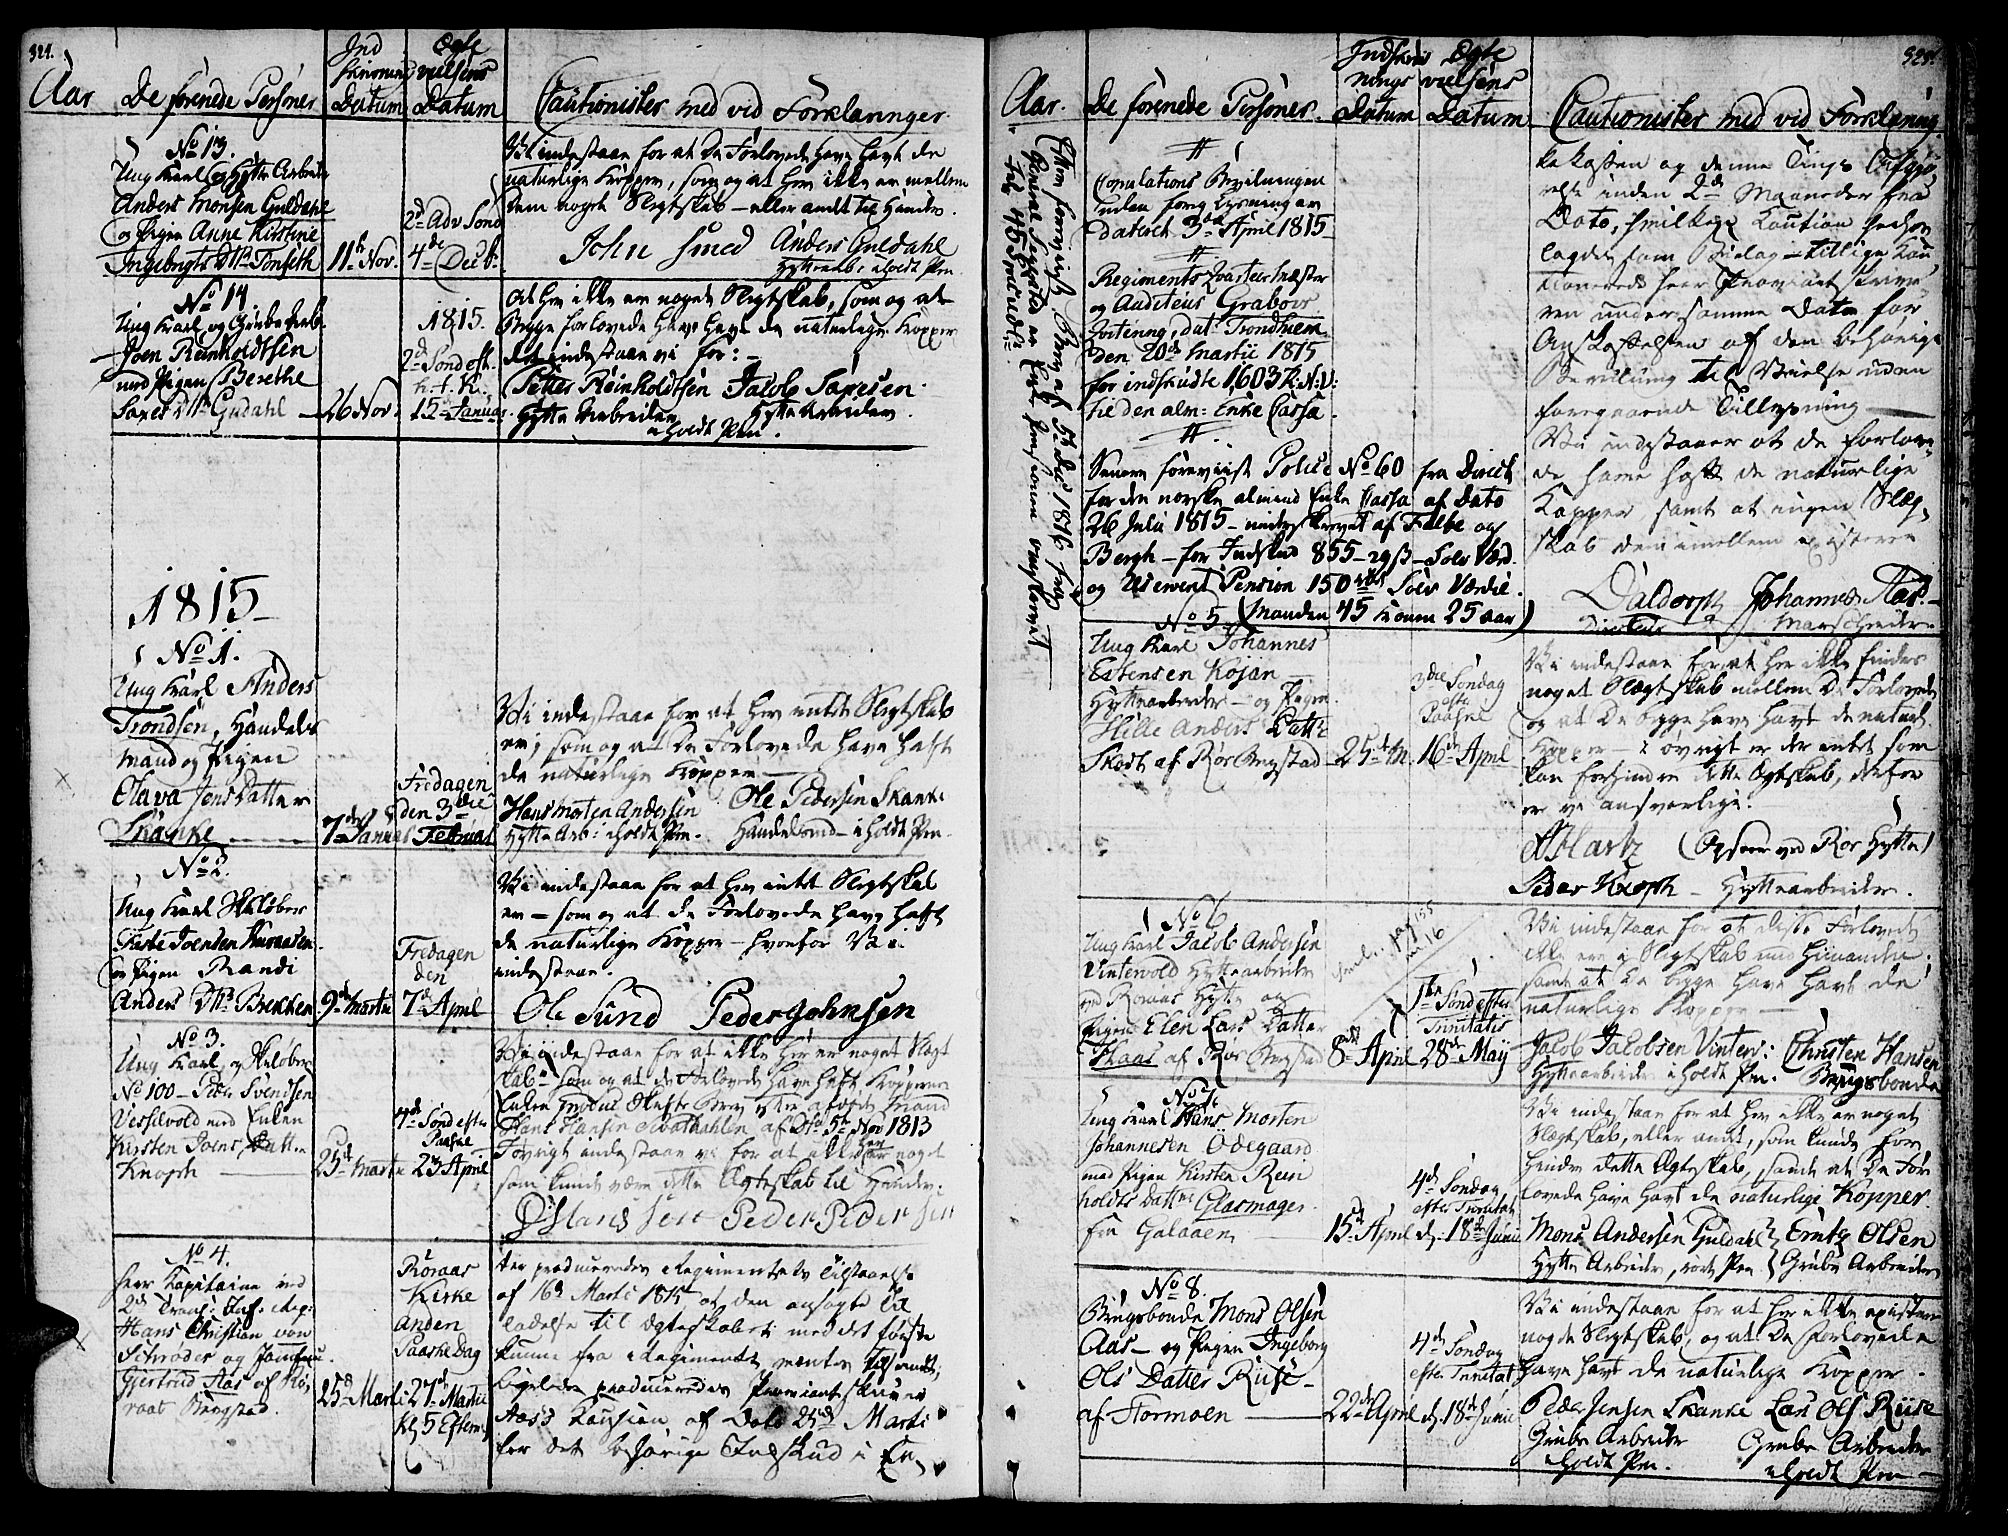 324.
Aar
De forenede Personer
Ind
skrivnings
Datum
Ægte
vielsens
Datum
Cautionister med vid. Forklaringer
No 13.
Ung Karl og Hytte Arbeider
Anders Monsen Guldahl
og Pigen Anne Kirstine
Ingebrigts Dtr Tonseth
11te Nov.
2d Adv Sond
4de Decb.
Vi indestaae for at De Forlovede have havt de
naturlige Kopper, som og at her ikke er mellem
dem noget Slegtskab – eller andt til Hinder.
John Smed Anders Guldahl
Hyttearb: iholdt Pen
No 14.
Ung Karl og Grube Arb.
Joen Reinholdtsen
med Pigen Berethe
Saxes Dtr Gudahl
26 Nov.
1815.
2d Sond eft.
h. t. K.
15 Januar.
At her ikke er noget Slegtskab, som og at
Begge forlovede have havt de naturlige Kopper
det indestaae vi for: –
Petter Reinholdtsen Jacob Saxesen
Hytte Arbeider Hytte Arbeider
iholdt Pen.
1815
No 1.
Ung Karl Anders
Trondsen, Handels
mand og Pigen
Olava Jens Datter
Skanke
7de Januar
Fredagen
den 3die
Februar
Vi indestaae for at her intet Slegtskab
er, som og at De Forlovede have haft
de naturlige Kopper –
Hans Morten Andersen Ole Pedersen Skanke
Hytte Arb: iholdt Pen. Handelsmd – i holdt Pen
No 2.
Ung Karl Skiløber
Joensen
og Pigen Randi
Anders Dtr Brekken
9de Martii
Fredagen
den
7de April
Vi indestaae for at her intet Slegtskab
er – som og at de Forlovede have hafft
de naturlige Kopper – hvorfor Vi
indestaae.
Ole Sund Peder Johnsen
No 3.
Ung Karl og Skiløber
No 100 – Peder Svendsen
Vessilvold med Enken
Kirsten Joens Datter
Knoph
25de Martii
4de Sond efter
Paaske
23 April
Vi indestaae for at ikke her er noget Slegt
skab som og at de Forlovede have haft Kopperne
Enken Skifte Brev efter afdøde Mand
Hans Hansen af Dto 5te Nov 1813
Iøvrigt indestaae vi for at ikke her er noget
som kunde være dette Ægteskab til Hinder.
O Hansen Peder Pedersen
No 4.
Herr Kapitaine ved
2det Trondh: Inf. Reg:
Hans Christian von
Schrøder og Jomfrue
Gjertrud Aas af Rø,
raas Bergstad.
25de Marti
Røraas
Kirke
Anden
Paaske Dag
27de Martii
Kl 5 Efterm.
Her produceredes Regimentets Tilstaaelse
af 16de Marti 1815 at den ansøgte til
ladelse til Ægteskabet med det første
kunne fra Regimentet ventes tilsendt;
ligeledes produceredes Proviantskriver
Aas's Kaution af Dato 25de Marti
for det behørige Indskud i En,
325.
Aar.
De forenede Personer
Indskriv
nings
Datum
Ægte
vielsens
Datum
Cautionister med vid Forklaring
Efter foreviist Brev af 5 Dec 1816 fra
General er Enke Pensionen
for 45
Copulations Bevilningen
uden foreg Lysning er
dateret 3de April 1815
Regiments Qvarteermester
og Auditeur Grabow
qvitering, dat: Trondhiem
den 20de Martii 1815
for indskudte 1603 R. N: V:
til den alm: Enke Cassa.
Senere foreviist Police No 60 fra Direct
for den norske almind Enke Cassa af Dato
26 Julii 1815 – underskrevet af Falbe og
Bergh – for Indskud 855 – 29 ß – Solv Værd.
og Pension 150 rdr Solv Værdie.
(Manden 45 Konen 25 aar)
kekassen og denne Tings Afgjø,
relse inden 2de Maaneder fra
Dato, hvilken Kaution hedsen
lagdes som Bielag – tillige Kau
tionerede herr Proviantskrive
ren under samme Dato for
Anskaffelsen af den behørige
Bevilling til Vielse uden
foregaaende Tillysning
Vi indestaaer at de forlove
de have haft de naturlige
Kopper, samt at ingen Slæg,
skab dem imellem existerer
Daldorph Johannes Aas.
Directeur Marscheider
No 5
Ung Karl Johannes
Estensen Kojan
Hyttearbeider – og Pigen
Hille Anders Datter
Skott af Rør Bergstad
25de M.
3die Søndag
efter
Paaske
16de April
Vi indestaae for, at her ikke findes
noget Slægtskab mellem De Forlovede
og at De begge have havt de naturl.
Kopper – i øvrigt er der intet som
kan forhindre dette Ægtskab, derfor
er vi ansvarlige.
A Hartz (Opseer ved Rør Hytte)
Peder Knoph – Hyttearbeider.
No 6
Ung Karl Jacob Andersen
Vintervold Hyttearbeider
ved Roraas Hytte og
Pigen Elen Lars Datter
Haas af Rør Bergstad
8de April
1ste Sønd efter
Trinitatis
28de Maij
Vi indestaae for at disse Forlovede
ikke ere i Slegtskab med hinanden.
samt at De begge have havt de
naturlige Kopper –
Jacob Jacobsen Vinterv: Christen Hansen
Hyttearbeider iholdt Pen. Bergsbonde
No 7.
Ung Karl Hans Morten
Johannesen Ödegaard
med Pigen Kirsten Rein
holdts Datter Glasmager
fra Galaaen
15de April
4de Søndag
efter Trinitat
d. 18de Junii
Vi indestaae for at her ikke er noget
Slægtskab, eller andet, som kunde for
hindre dette Ægteskab, samt at De For
lovede have havt de naturlige Kopper.
Mons Andersen Guldahl Erntz Olsen
Hytte Arbeider, rørte Pen Grube Arbeider
No 8.
Bergsbonde Mons Olsen
Aas – og Pigen Ingeborg
Ols Datter Riise –
af Stormoen
22de April
4de Søndag
efter Trinitat
d. 18de Junii
Vi indestaae for at her ikke existerer
noget Slegtskab, og at De Forlovede
have havt de naturlige Kopper –
Peder Jensen Skanke Lars Ols Riise
Grube Arbeider Grube Arbeider
iholdt Pen. iholdt Pen